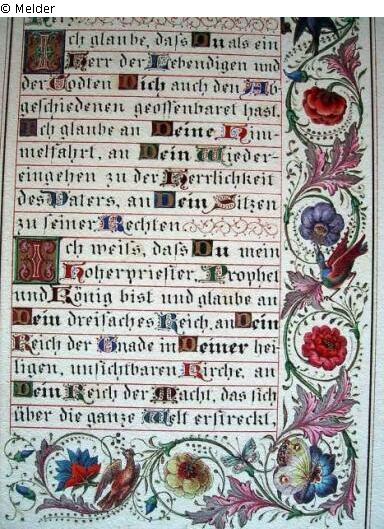 © Melder
Ich glaube, daſs Du als ein
Herr der Lebendigen und
der Todten Dich auch den Ab
geschiedenen geoffenbaret hast.
Ich glaube an Deine Him-
melfahrt, an Dein Wieder-
eingehen zu der Herrlichkeit
des Vaters, an Dein Sitzen
zu seiner Rechten
Ich weiſs, daſs Du mein
Hoherpriester, Prophet
und König bist und glaube an
Dein dreifaches Reich, an Dein
Reich der Gnade in Deiner hei-
ligen, unsichtbaren Kirche, an
Dein Reich der Macht, das sich
über die ganze Welt erstreckt